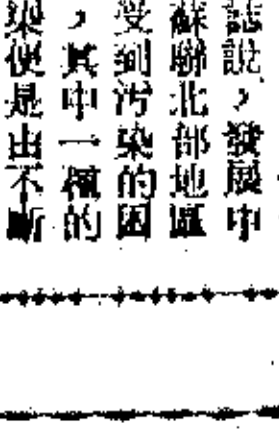 誌說，發展中
蘇聯北部地區
受到污染的困
，其中一種的
染便是由不斷